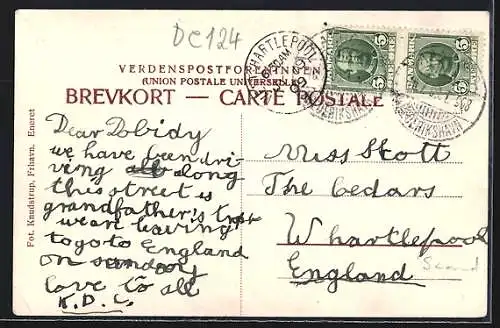 DC124
VERDENSPOSTFORENINGEN
(UNION POSTALE UNIVERSELLE)
BREVKORT — CARTE POSTALE
Fot. Knudstrup, Frhavn. Eneret
HARTLEPOOL
5
5
Dear Dobidy
we have been dri-
ving all along
this street is
grandfather's
we are leaving
to go to England
on sunday
love to all
K.D.C.
Miss Stott
The Cedars
W hartlepool
England